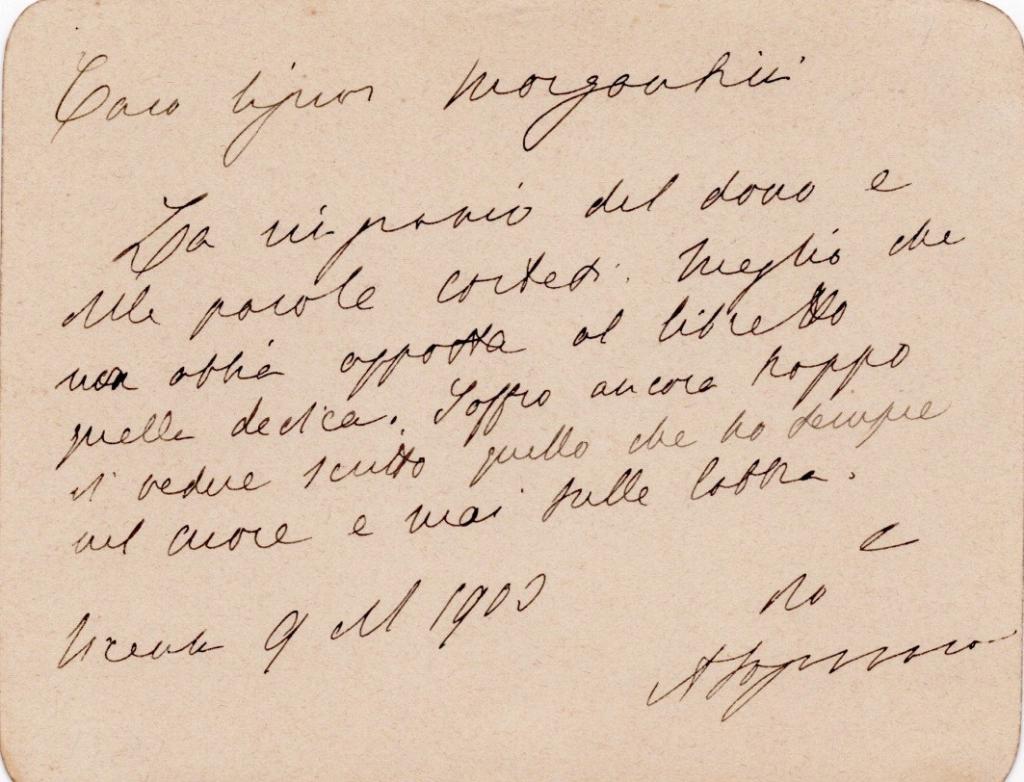 Caro signor Morganti
La ringrazio del dono e
delle parole cortesi. Meglio che
non abbia apposta al libretto
quella dedica. Soffro ancora troppo
di vedere scritto quello che ho sempre
nel cuore e mai sulle labbra.
Vicenza 9 1903
Suo
AFogazzaro